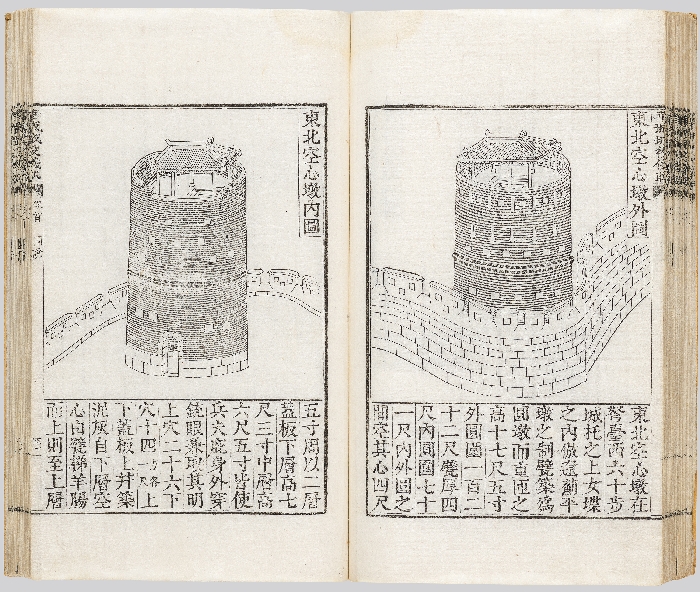 東北空心墩外圖
東北空心墩在
弩臺西六十步
城托之上女堞
之內倣遼薊平
墩之制甓築爲
圓墩而重匝之
高十七尺五寸
外圓圍一百二
十二尺甓厚四
尺內圓圍七十
一尺內外圓之
間空其心四尺
東北空心墩內圖
五寸周以二層
蓋板下層高七
尺三寸中層高
六尺五寸皆使
兵夫庇身外穿
銃眼兼取其明
上穴二十六下
穴十四方各一尺上
下蓋板上幷築
泥灰自下層空
心由甓梯羊膓
而上則至上層